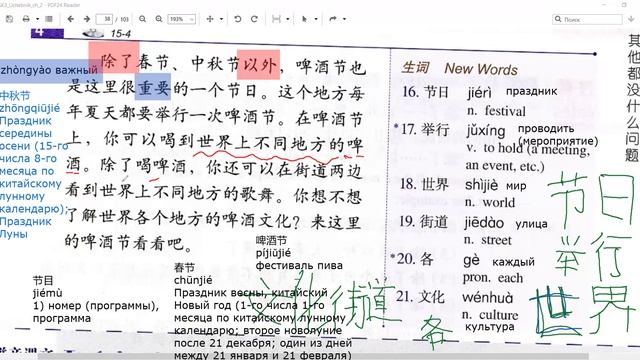 38
/ 103
193%
Поиск
4
15-4
除了春节、中秋节以外，啤酒节也
是这里很重要的一个节日。这个地方每
年夏天都要举行一次啤酒节。在啤酒节
上，你可以喝到世界上不同地方的啤
酒。除了喝啤酒，你还可以在街道两边
看到世界上不同地方的歌舞。你想不想
了解世界各个地方的啤酒文化？来这里
的啤酒节看看吧。
zhòngyào важный
中秋节
zhōngqiūjié
Праздник
середины
осени (15-го
числа 8-го
месяца по
китайскому
лунному
календарю);
Праздник
Луны
节目
jiémù
1) номер (программы),
программа
春节
chūnjié
Праздник весны, китайский
Новый год (1-го числа 1-го
месяца по китайскому лунному
календарю; второе новолуние
после 21 декабря; один из дней
между 21 января и 21 февраля)
啤酒节
píjiǔjié
фестиваль пива
生词 New Words
16. 节日 jiérì праздник
n. festival
*17. 举行 jǔxíng проводить
(мероприятие)
v. to hold (a meeting,
an event, etc.)
18. 世界 shìjiè мир
n. world
19. 街道 jiēdào улица
n. street
*20. 各 gè каждый
pron. each
21. 文化 wénhuà
n. culture
культура
其他都没什么问题
节日
举行
世界
文化
街道
各